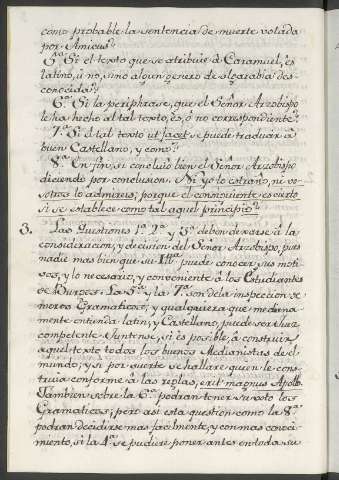 como probable la sentencia de muerte votada
por Amicus?
5ª Si el texto que se atribuie à Caramuel, es
latino, ù no, sino algun genero de algarabia des-
conocida?
6ª Si la periphrase, que el Señor Arzobispo
le ha hecho al tal texto, es, ò no correspondiente?
7ª Si el tal texto ut jacet se puede traducir à
buen Castellano, y como?
8ª En fin, si concluiò bien el Señor Arzobispo
diciendo por conclusion. Ni yo lo estraño, ni vo-
sotros lo admireis; porque el consiguiente es cierto
si se establece como tal aquel principio?
3. Las Questiones 1ª 2ª y 3ª deben dexarse à la
consideracion, y decision del Señor Arzobispo, pues
nadie mas bien que su Illma puede conocer sus moti-
vos, y lo necesario, y conveniente à los Estudiantes
de Burgos. La 5ª y la 7ª son de la inspeccion de
meros Gramaticos, y qualquiera que mediana-
mente entienda latin, y Castellano, puede ser Juez
competente. Juntense, si es posible, à construir
aquel texto todos los buenos Medianistas de el
mundo; y si por suerte se hallare quien le cons-
truia conforme à las reglas, erit magnus Apollo.
Tambien sobre la 6ª podran tener su voto los
Gramaticos; pero asi esta question como la 8ª
podran decidirse mas facilmente, y con mas conoci-
miento, si la 4ª se pudiere poner antes en toda su